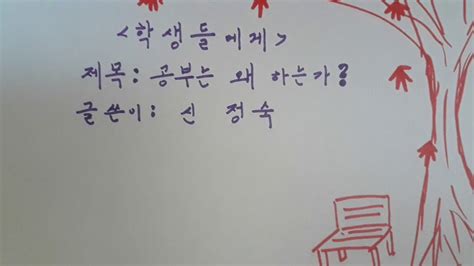 <학생들에게>
제목: 공부는 왜 하는가?
글쓴이: 신 정숙